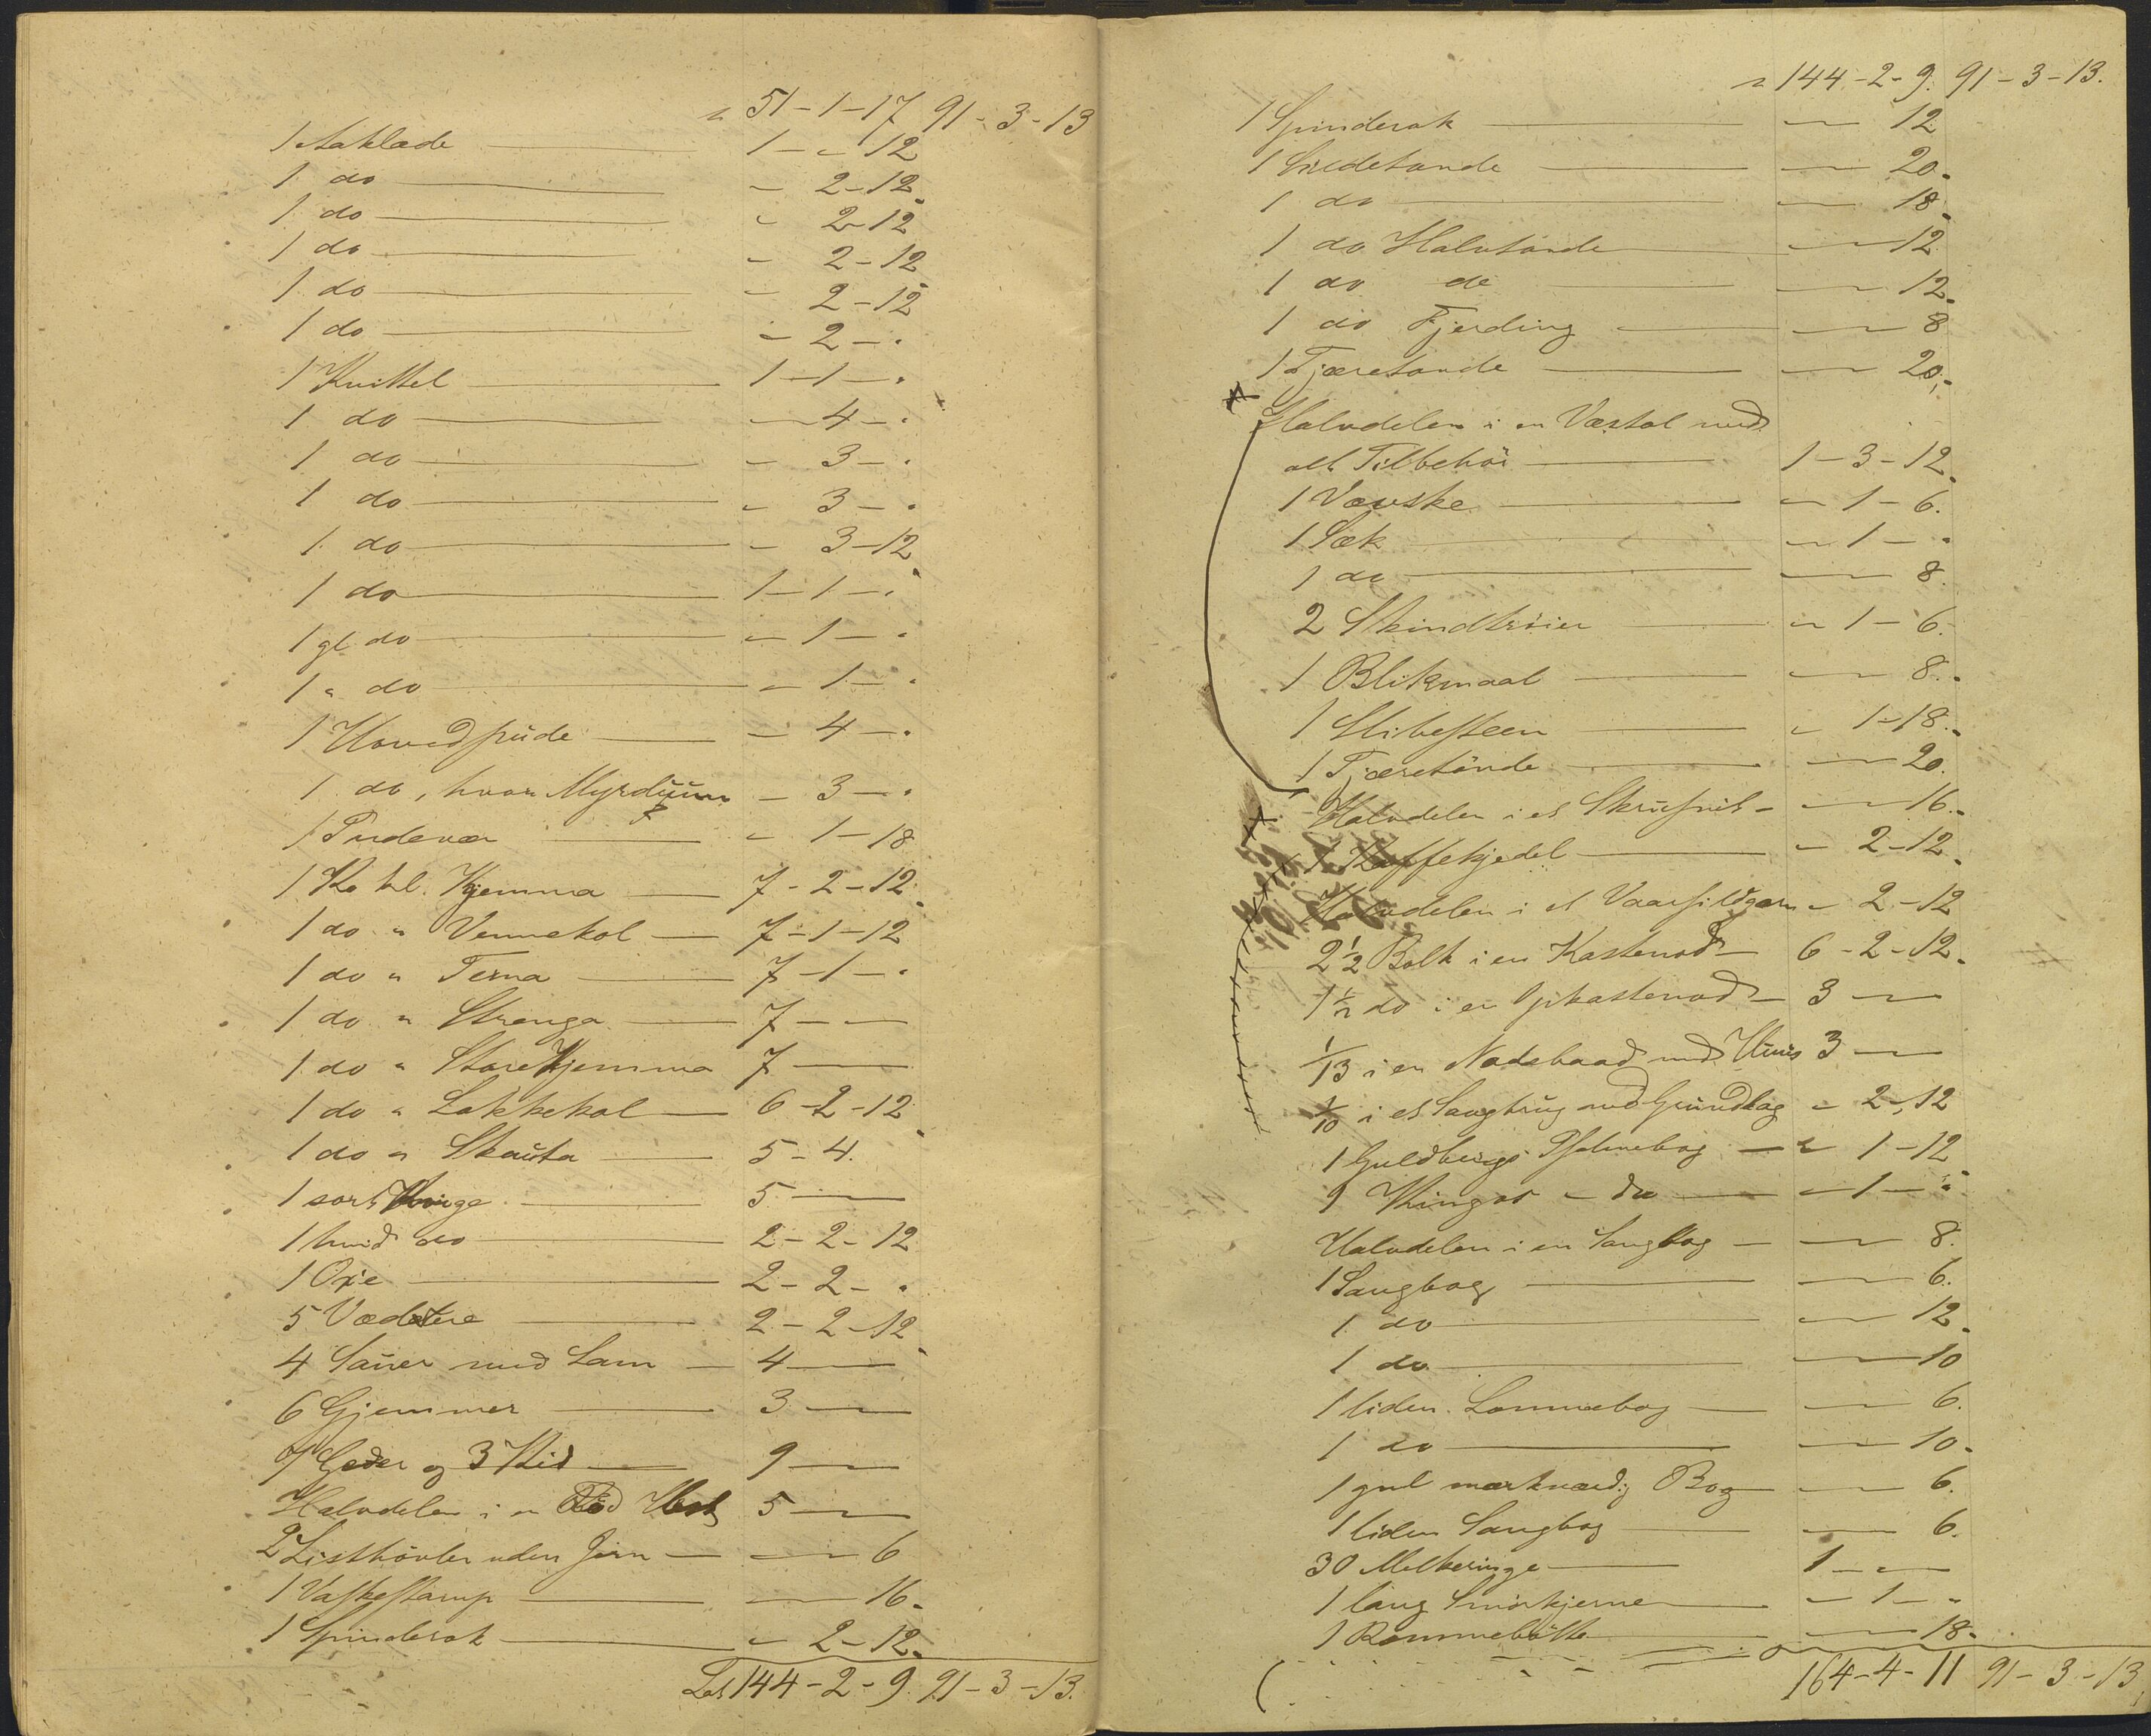 " 51-1-17 91-3-13
1 Aaklæde 1 - " 12
1 do - 2-12
1 do " 2-12
1 do - 2-12
1 do - 2-12
1 do - 2 - "
1 Kvittel 1-1-"
1 do - 4-"
1 do - 3-"
1 do - 3-"
1 do - 3-12
1 do 1-1-"
1 gl do - 1-"
1 " do - 1-"
1 Hovedpude - 4-"
1 do, hvor Myrduun - 3-"
1 Pudevær - 1-18
1 Ko kl. Kjemma 7-2-12
1 do " Vennekol 7-1-12
1 do " Terna 7-1-"
1 do " Strenga 7 - -
1 do " Store Kjemma 7 -
1 do " Lakkekol 6-2-12
1 do " Skauta 5-4.
1 sort Kvige 5 -
1 hvid do 2-2-12
1 Oxe 2-2-"
5 Vædere 2-2-12
4 Sauer med Lam 4 -
6 Gjemmer 3 -
7 Geder og 3 Kid 9 -
Halvdelen i en Rød Hest 5 -
2 Listhövler uden Jern - 6
1 Vaskestamp - 16
1 Spinderok - 2-12
Lat 144-2-9. 91-3-13.
" 144-2-9. 91-3-13.
1 Spinderok - 12
1 Sildetønde - 20
1 do - 18
1 do Halvtønde - 12
1 do do - 12
1 do Fjerding - 8
1 Tjæretønde - 20
Halvdelen i en Væstol med
alt Tilbehör 1-3-12
1 Vævske - 1-6.
1 Sæk - 1-"
1 do - 8.
2 Skindtröier - 1-6.
1 Blikmaal - 8.
1 Slibesteen - 1-18.
1 Tjæretønde - 20.
Halvdelen i et - 16.
1 Kaffekjedel - 2-12
Halvdelen i et Vaarsildgarn - 2-12
2½ Bolk i en Kastenod 6-2-12
1½ do i en Opkastenod 3 -
1/13 i en Nodebaad med Huus 3 -
1/10 i et med Grundtag - 2-12
1 Guldbergs Psalmebog - 1-12
1 Kingos - do - 1-"
Halvdelen i en Sangbog - 8.
1 Sangbog - 6.
1 do - 12
1 do - 10
1 liden Lommebog - 6.
1 do - 10
1 gul mærkværdig Bog - 6.
1 liden Sangbog - 6.
30 Melkeringe 1 - -
1 lang Smörkjerne - 1-"
1 Rommebötte - 18
164-4-11 91-3-13